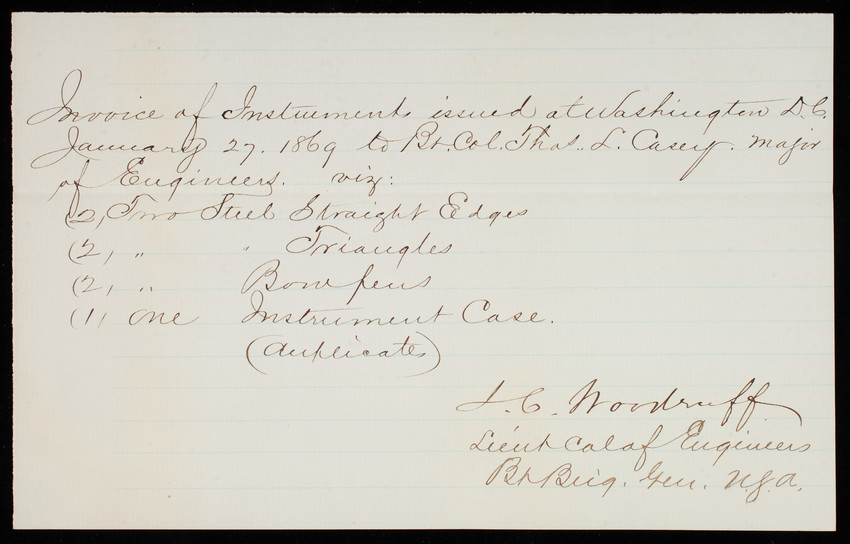 Invoice of Instruments issued at Washington D.C.
January 27. 1869 to Bt. Col. Thos. L. Casey. Major
of Engineers. viz:
(2) Two Steel Straight Edges
(2) " " Triangles
(2) " Bow pens
(1) one Instrument Case.
(duplicates)
I. C. Woodruff
Lieut Col of Engineers
Bt Brig. Gen. U.S.A.